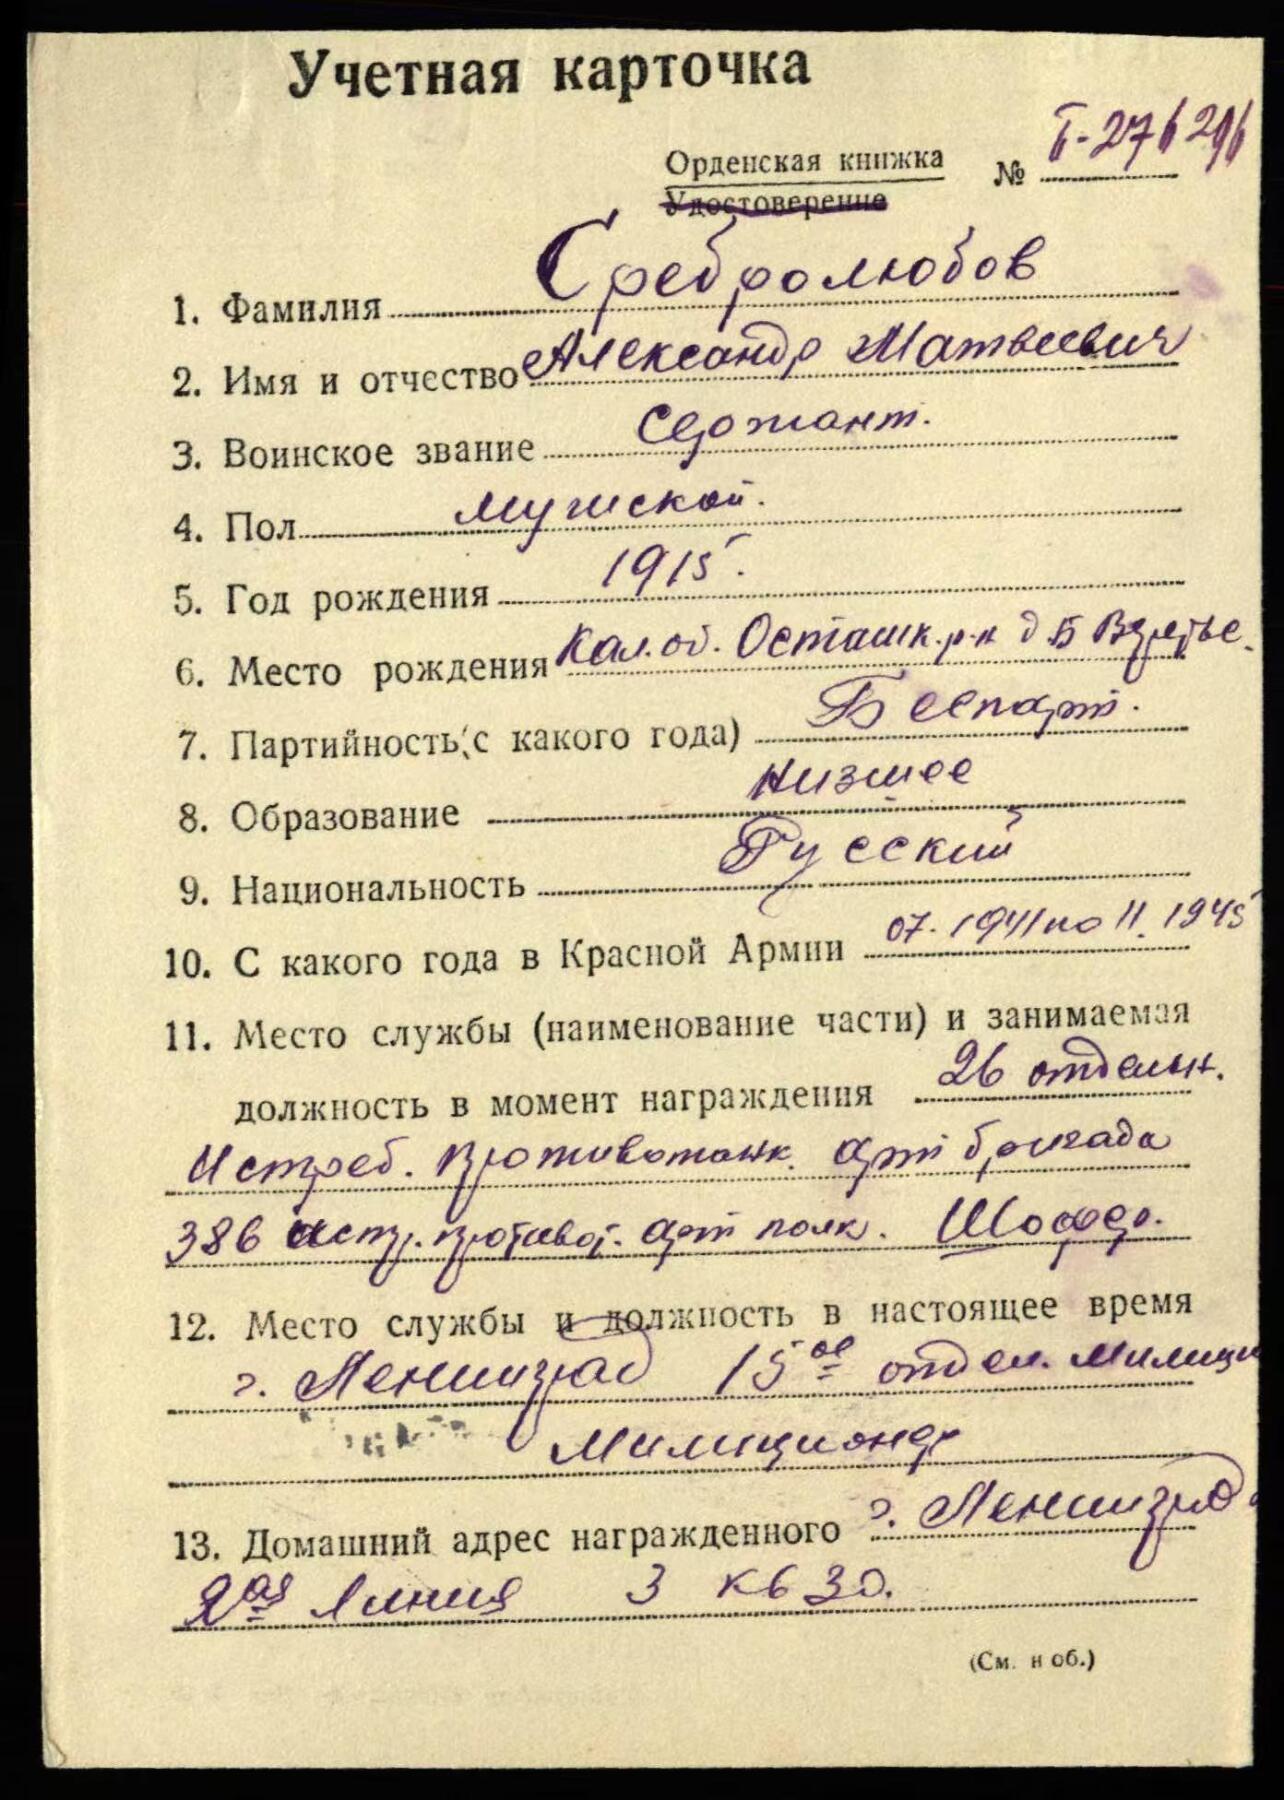 Учетная карточка
Орденская книжка № Б-276296
Удостоверение
1. Фамилия Сребролюбов
2. Имя и отчество Александр Матвеевич
3. Воинское звание Сержант.
4. Пол мужской.
5. Год рождения 1915.
6. Место рождения Кал. об. Осташк. р-н д Б
7. Партийность (с какого года) Беспарт.
8. Образование низшее
9. Национальность Русский
10. С какого года в Красной Армии 07. 1941 по 11. 1945
11. Место службы (наименование части) и занимаемая
должность в момент награждения 26 отдельн.
Истреб. противотанк. арт бригада
386 истр. против. арт полк. Шофер.
12. Место службы и должность в настоящее время
г. Ленинград 15ое отдел. милици
Милиционер
13. Домашний адрес награжденного г. Ленинград
2ая Линия 3 кв 30.
(См. н об.)